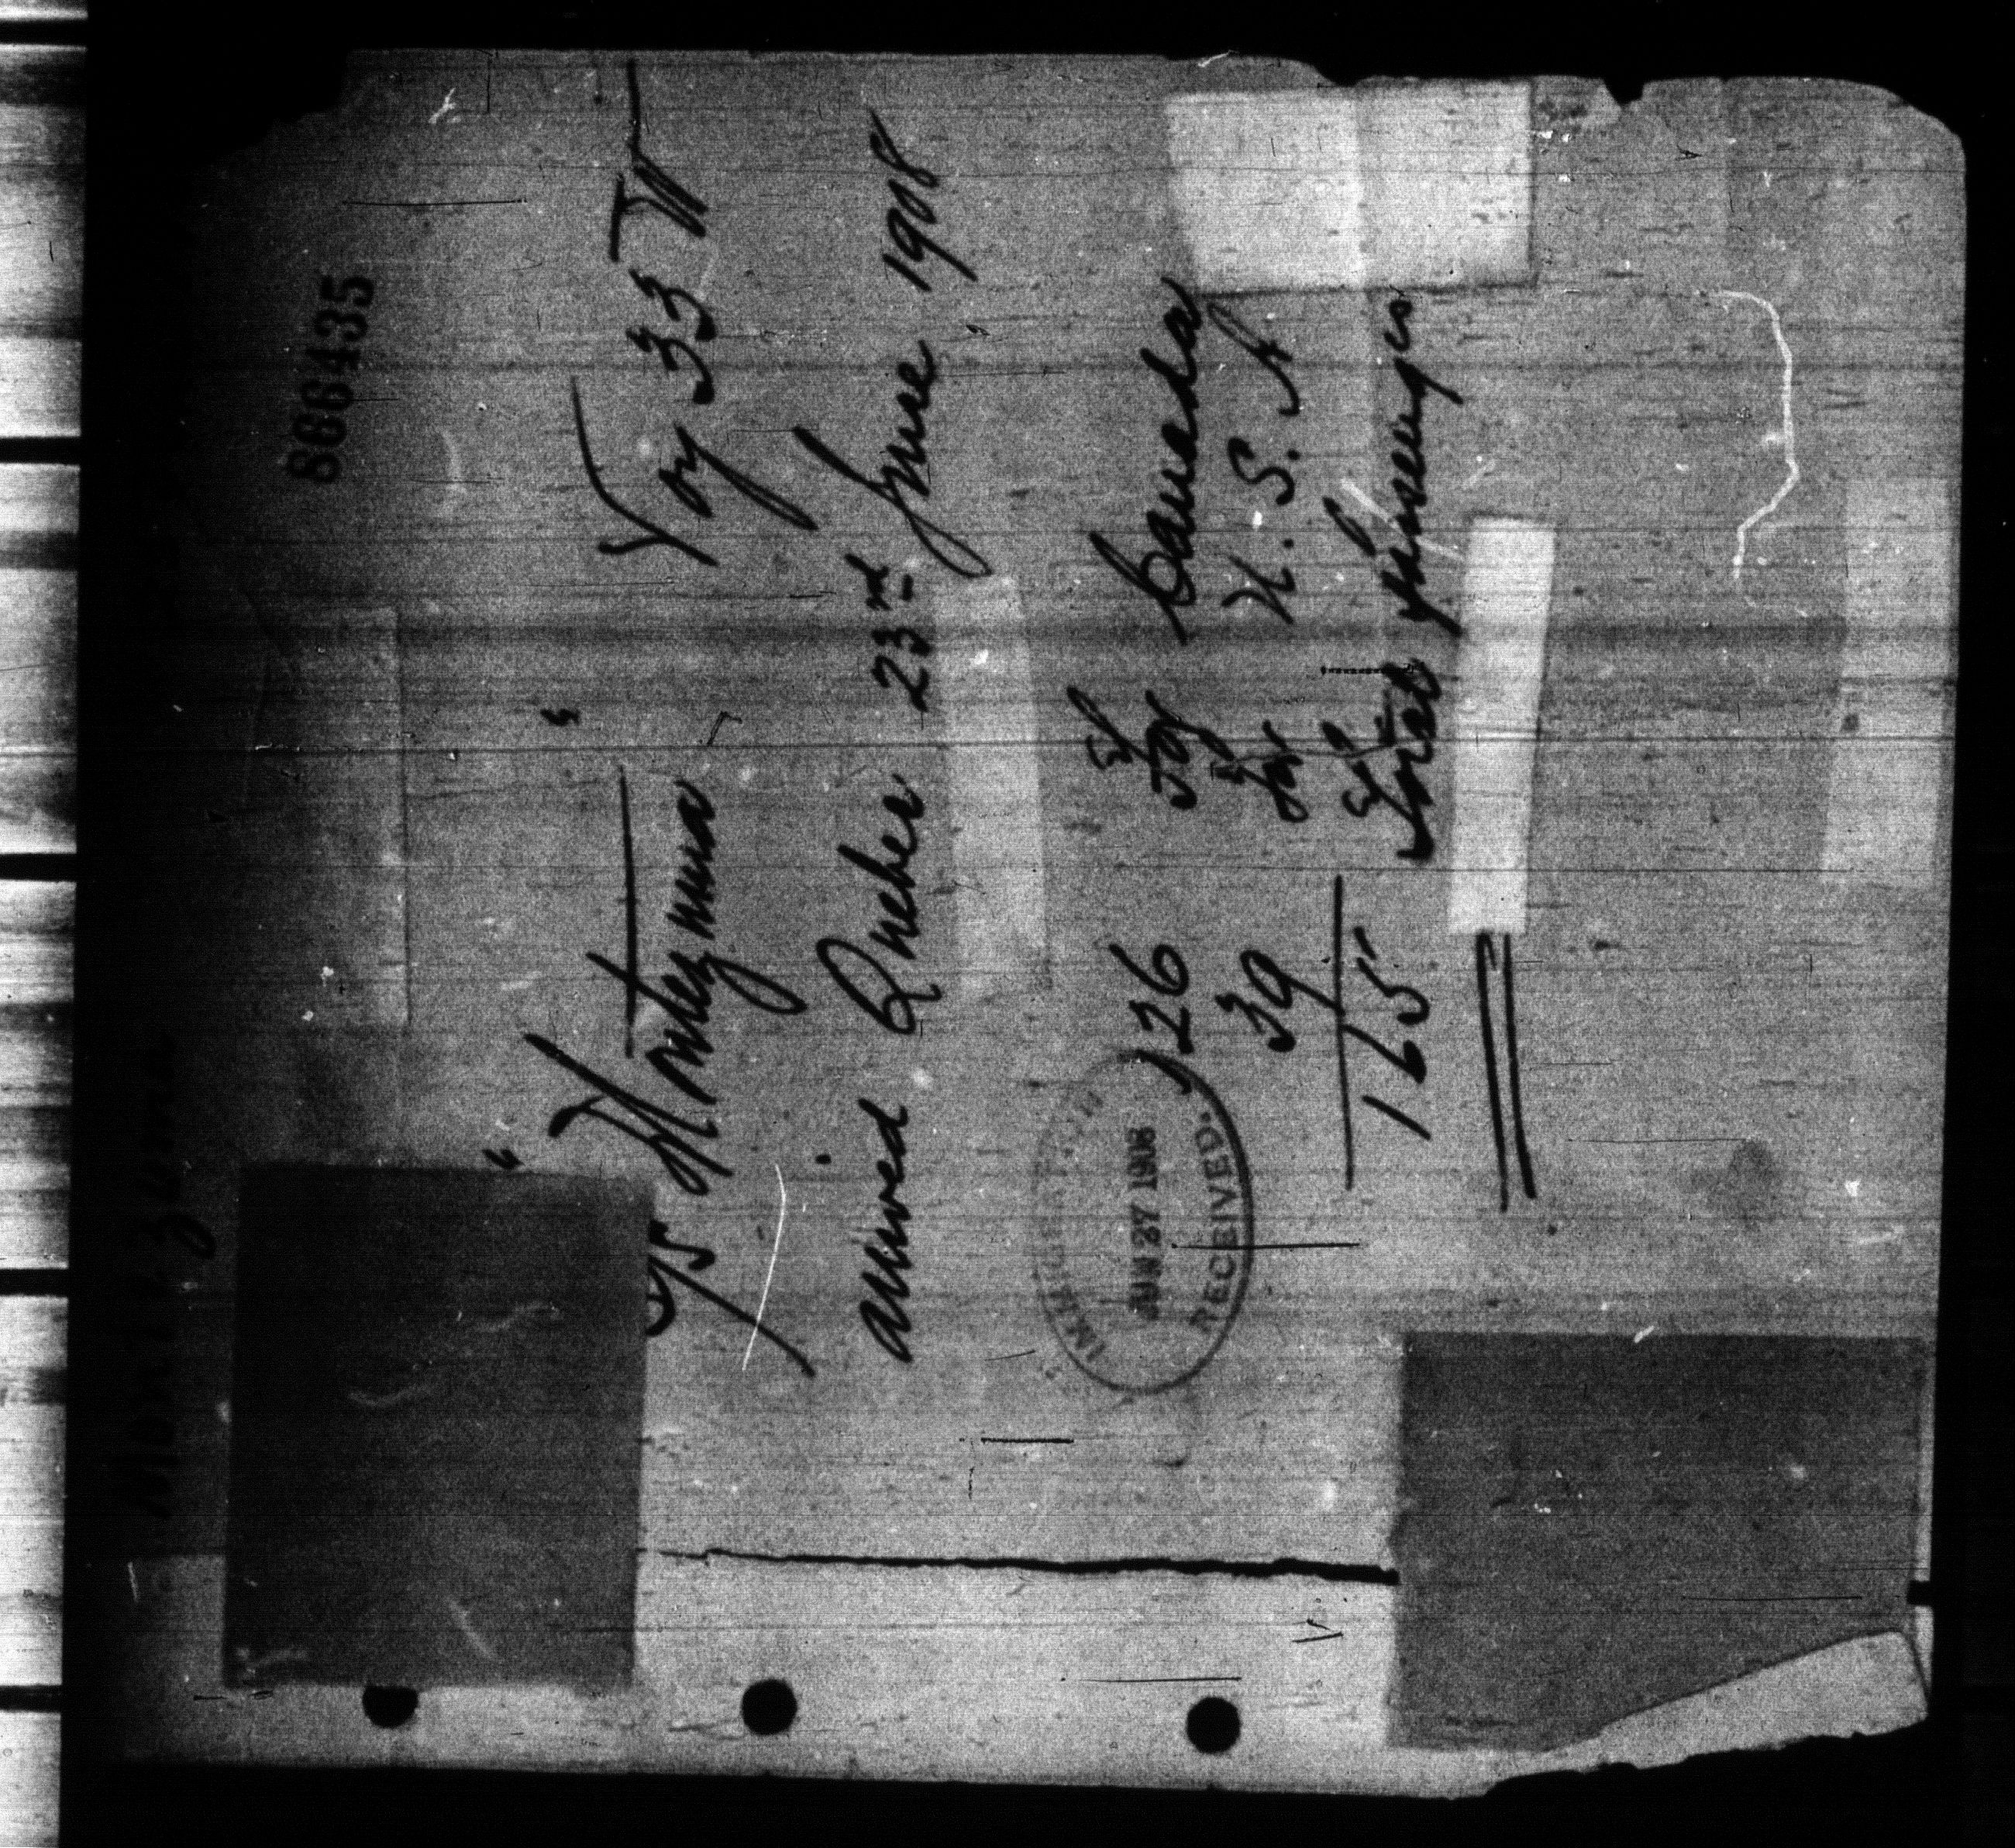 886435
SS "Montezuma" Voy 33 W
arrived Quebec 23rd June 1908
126 For Canada
39 For U.S.A
165 Total passengers
IMMIGRATION
JUN 27 1908
RECEIVED.